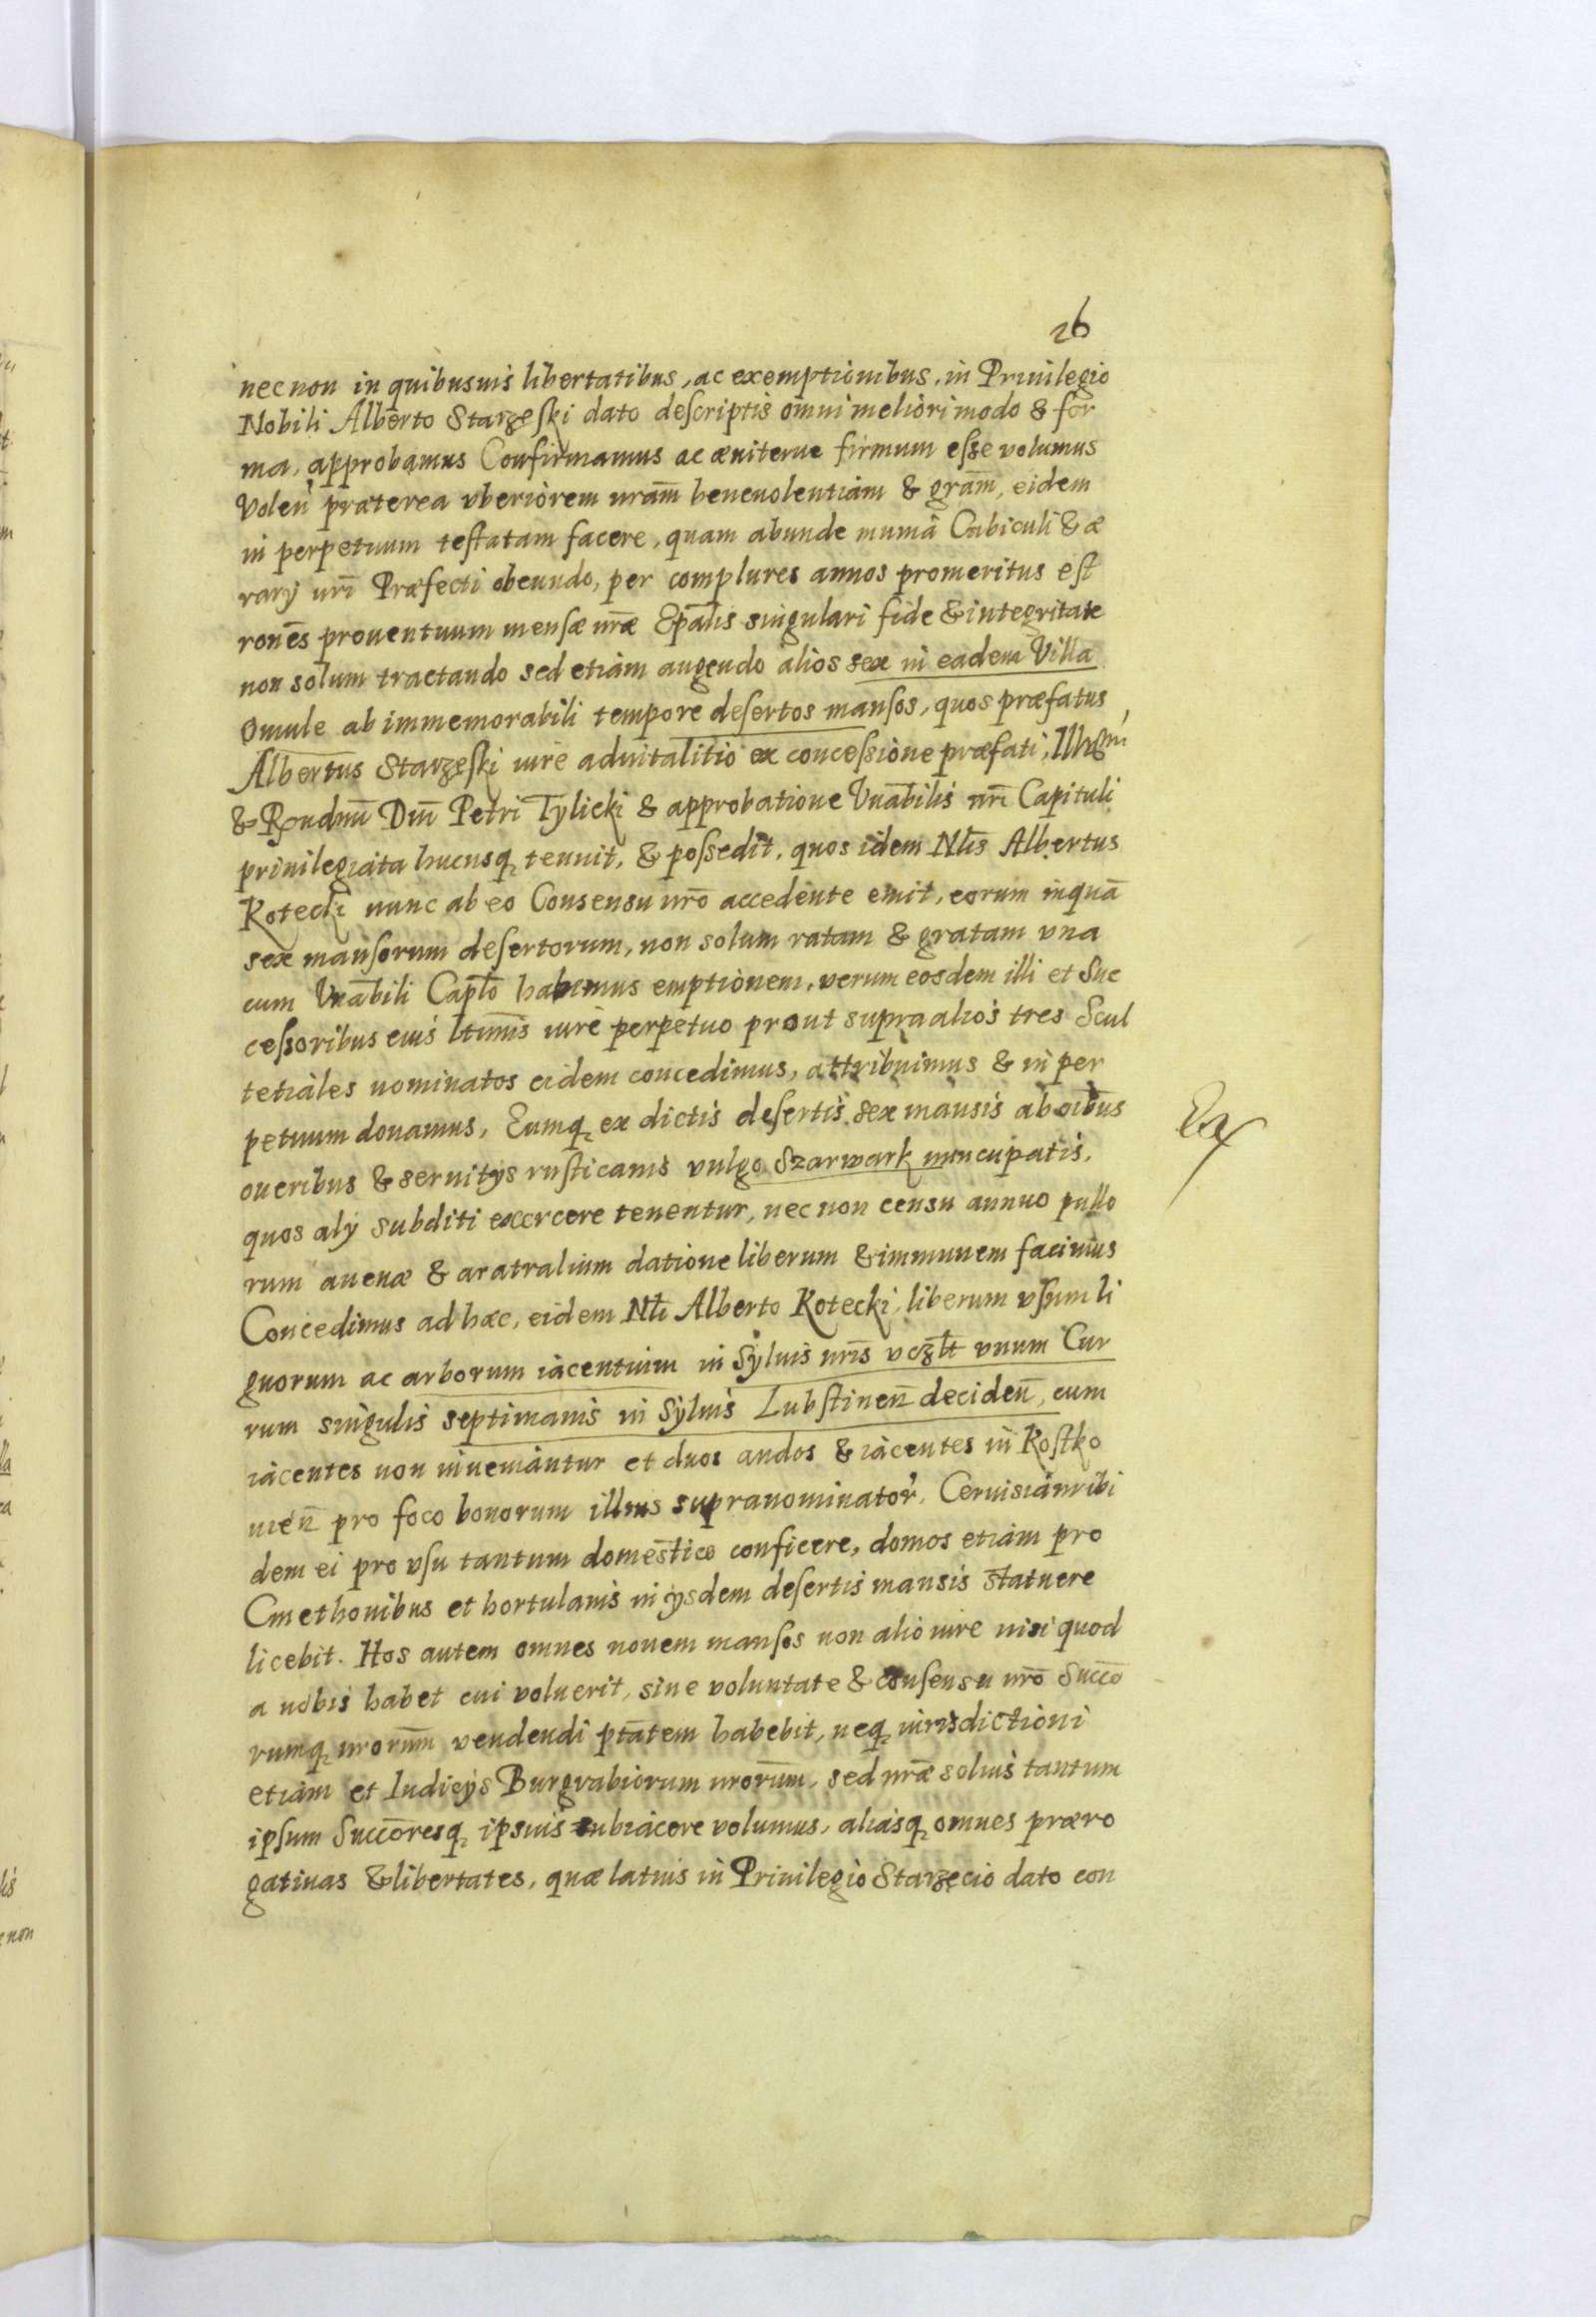 26
nec non in quibusuis libertatibus, ac exemptionibus, in Priuilegio
Nobili Alberto Starzeski dato descriptis omni meliori modo & for
ma, approbamus Confirmamus ac æuiterne firmum esse volumus
Volen praeterea vberiorem nram̄ beneuolentiam & gram̄, eidem
in perpetuum testatam facere, quam abunde munia Cubiculi & æ
rarÿ nrī Præfecti obeundo, per complures annos promeritus est
ronēs prouentuum mensæ nrǣ Epālis singulari fide & integritate
non solum tractando sed etiam augendo alios sex in eadem Villa
Omule ab immemorabili tempore desertos mansos, quos præfatus
Albertus Starzeski iure aduitalitio ex concessione præfati, Illmi
& Rendmī Dnī Petri Tylicki & approbatione Vnābilis nrī Capituli
priuilegiata hucusq tenuit, & possedit, quos idem Nlīs Albertus
Kotecki nunc ab eo Consensu nrō accedente emit, eorum inquā
sex mansorum desertorum, non solum ratam & gratam vna
cum Vnābili Caplō habemus emptionem, verum eosdem illi et Suc
cessoribus eius ltimīs iure perpetuo prout supra alios tres Scul
tetiales nominatos eidem concedimus, attribuimus & in per
petuum donamus, Eumq ex dictis desertis sex mansis ab oībus
oneribus & seruitÿs rusticanis vulgo Szarwark nuncupatis,
quos alÿ subditi exercere tenentur, nec non censu annuo pullo
rum auenæ & aratralium datione liberum & immunem facimus
Concedimus ad hæc, eidem Nlī Alberto Kotecki, liberum vsum li
gnorum ac arborum iacentium in Syluis nrīs vczlt vnum Cur
rum singulis septimanis in Syluis Lubstinen̄ deciden̄, cum
iacentes non inueniantur et duos andos & iacentes in Kostko
uien̄ pro foco bonorum illius supranominator, Ceruisiam ibi
dem ei pro vsu tantum domestico conficere, domos etiam pro
Cmethonibus et hortulanis in ÿsdem desertis mansis statuere
licebit. Hos autem omnes nouem mansos non alio iure nisi quod
a nobis habet cui voluerit, sine voluntate & consensu nrō Succō
rumq nrorum̄ vendendi ptātem habebit, neq iurisdictioni
etiam et Iudicÿs Burgrabiorum nrorum̄, sed nrǣ solius tantum
ipsum Succōresq ipsius subiacere volumus, aliasq omnes præro
gatiuas & libertates, quæ latius in Priuilegio Starzecio dato con